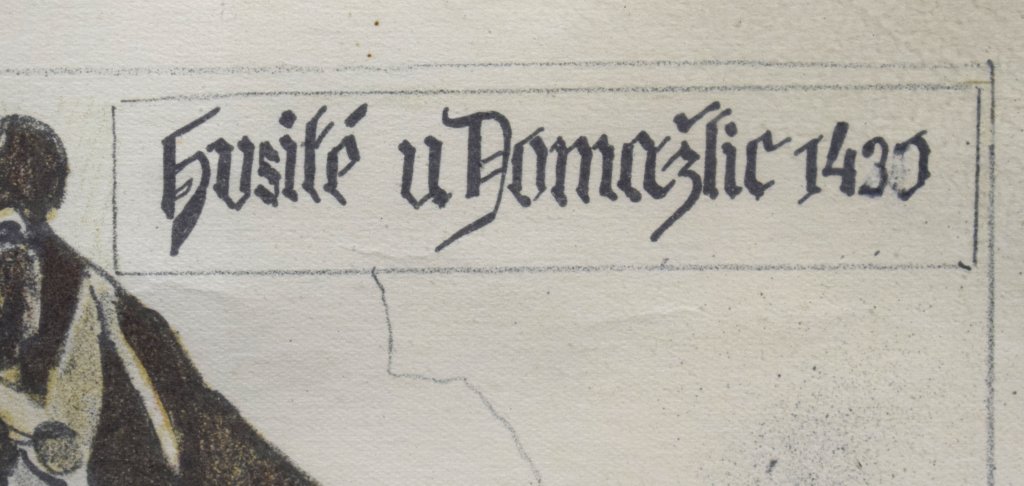 Husité u Domažlic 1430